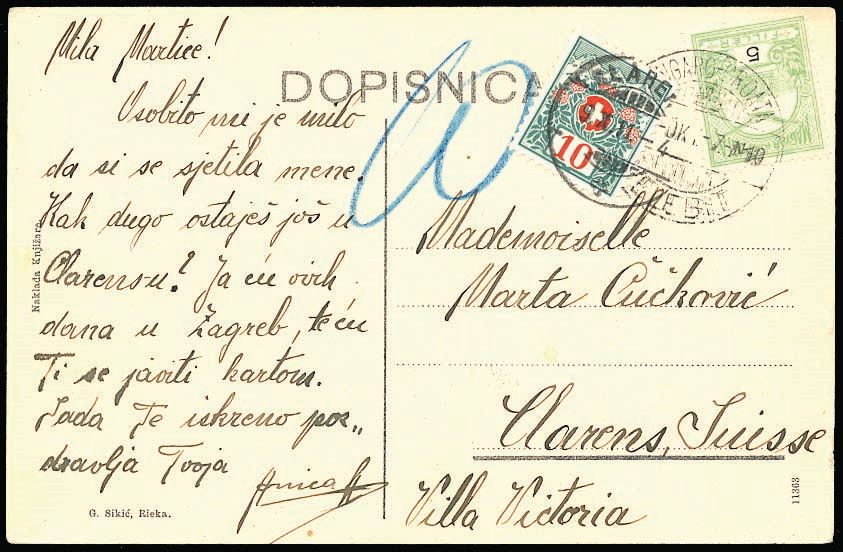 Mila Martice!
Osobito mi je milo
da si se sjetila mene.
Kak dugo ostaješ još u
Clarens-u? Ja ću ovih
dana u Zagreb, te ću
Ti se javiti kartom.
Sada Te iskreno poz„
dravlja Tvoja
Anica
G. Sikić, Rieka.
Naklada Knjižare
DOPISNICA
10
FILLER
5
Mademoiselle
Marta Čučković
Clarens, Suisse
Villa Victoria
11363